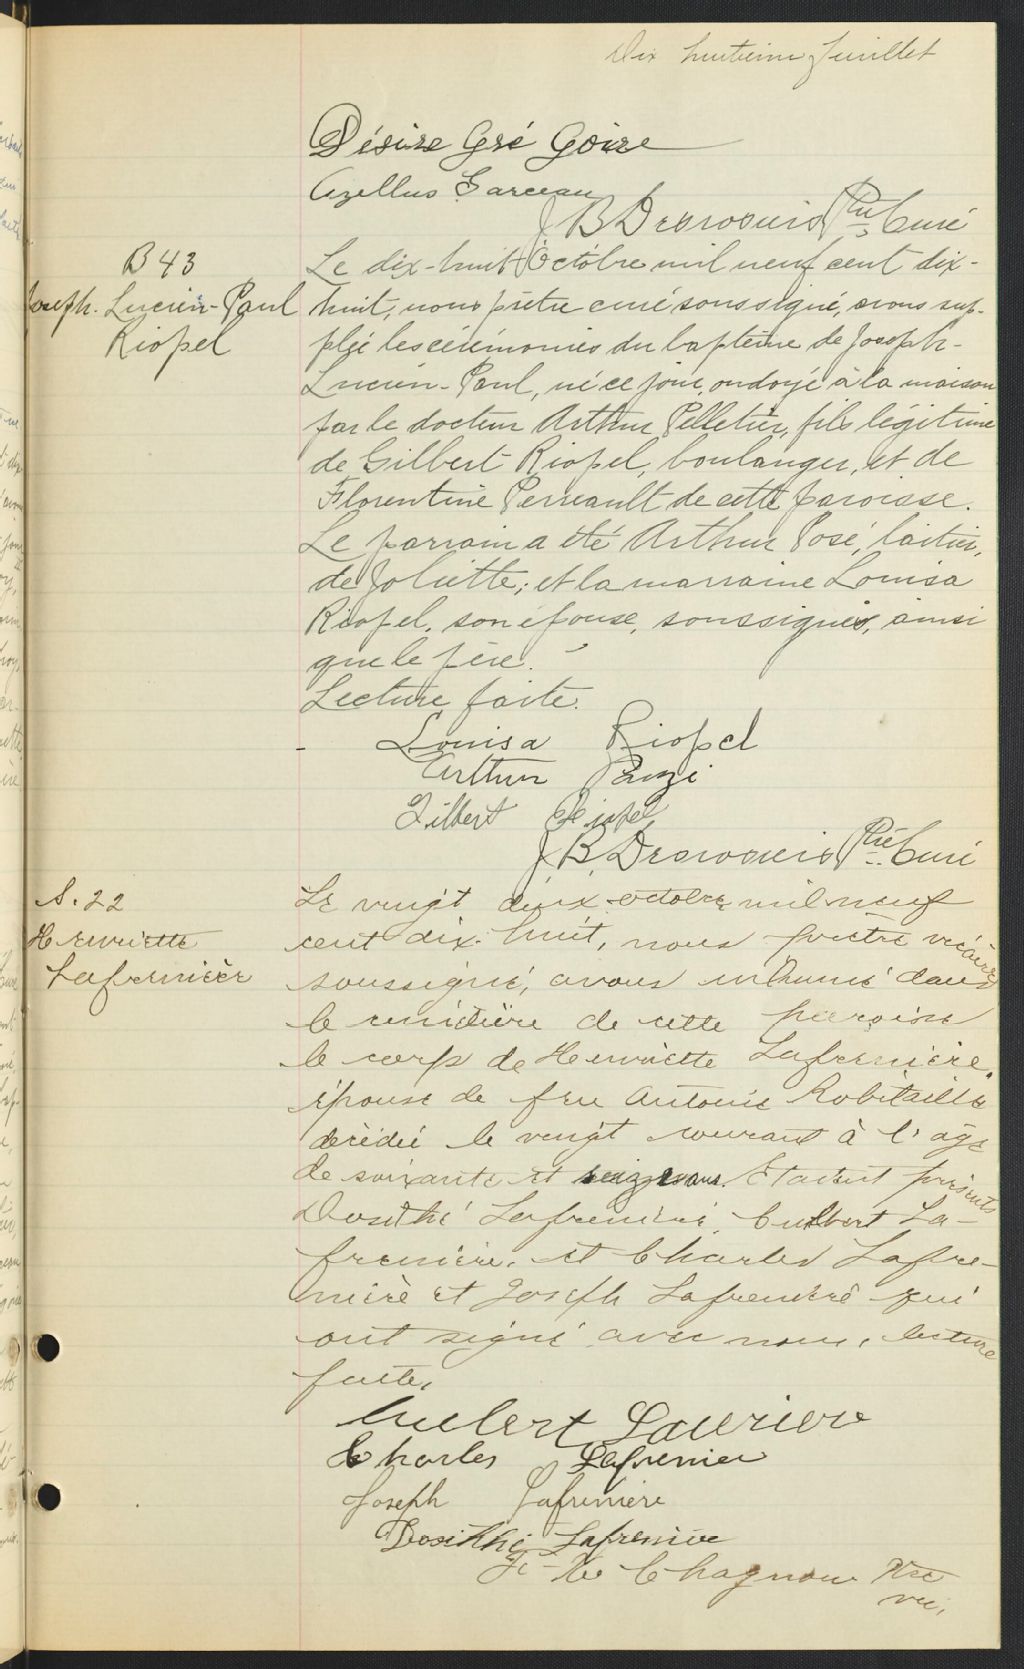 Dix huitième feuillet
Désiré Gré Goire
Azellus Garceau
J B Desrosiers Ptre Curé
B 43
Joseph-Lucien-Paul
Riopel
Le dix-huit Octobre mil neuf cent dix-
huit, nous prêtre curé soussigné, avons sup-
pléé les cérémonies du baptême de Joseph-
Lucien-Paul, né ce jour, ondoyé à la maison
par le docteur Arthur Pelletier, fils légitime
de Gilbert Riopel, boulanger, et de
Florentine Perreault de cette paroisse.
Le parrain a été Arthur Posé, laitier,
de Joliette; et la marraine Louisa
Riopel, son épouse, soussignés, ainsi
que le père.
Lecture faite.
Louisa Riopel
Arthur Pauzé
Gilbert Riopel
J B Desrosiers Ptre Curé
S. 22
Henriette
Lafernière
Le vingt deux octobre mil neuf
cent dix-huit, nous prêtre vicaire
soussigné, avons inhumé dans
le cimetière de cette paroisse
le corps de Henriette Lafrenière,
épouse de feu Antoine Robitaille
décédée le vingt courant à l'âge
de soixante et seize ans. Etaient présents
Dosithé Lafrenière, Cuthbert La-
frenière, et Charles Lafre-
nière et Joseph Lafrenière qui
ont signé avec nous, lecture
faite,
Charles Lafrenier
Joseph Lafreniere
Dosithé Lafreniere
Chagnon Ptre
vic.